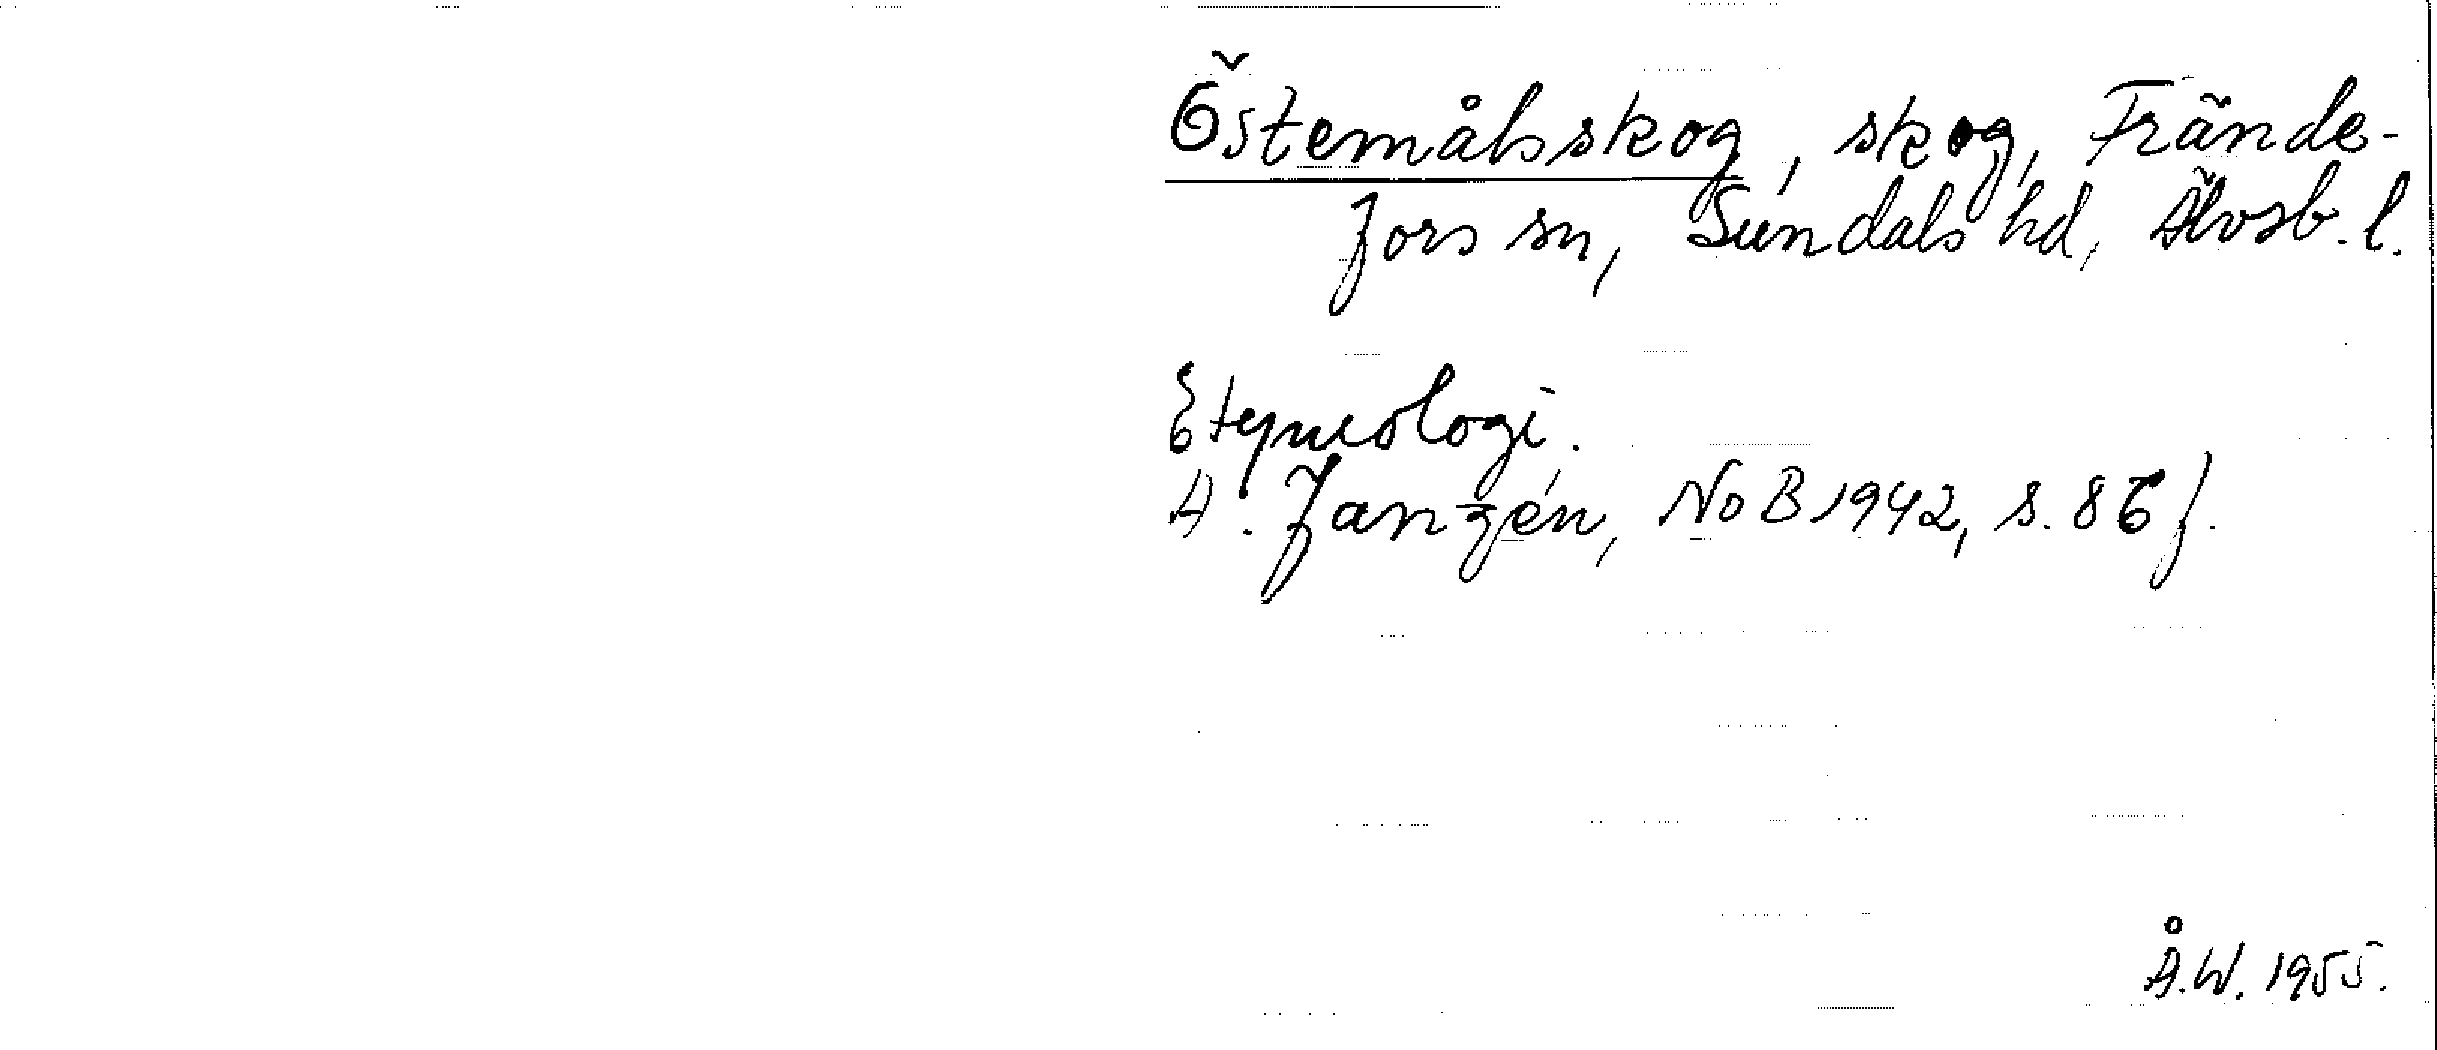 Östemålsskog, skog, Frände-
fors sn, Sundals hd, Älvsb. l.
Etymologi.
A. Janzén, NoB 1942, s. 86 f.
Å.W. 1955.